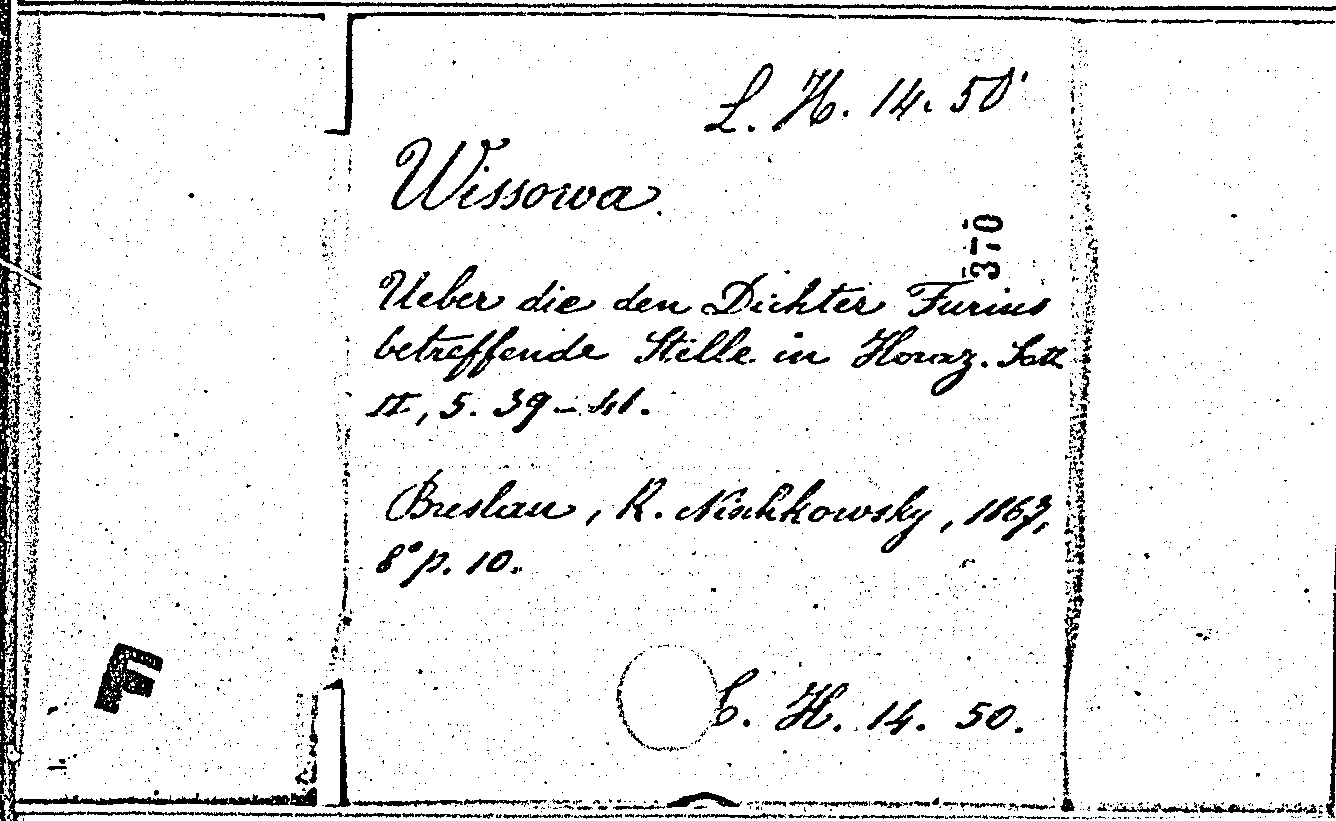 L. H. 14. 50.
Wissowa.
370
Ueber die den Dichter Furius
betreffende Stelle in Horaz. Satt
II, 5. 39-41.
Breslau, R. Nischkowsky, 1867,
8° p. 10.
F
H. 14. 50.